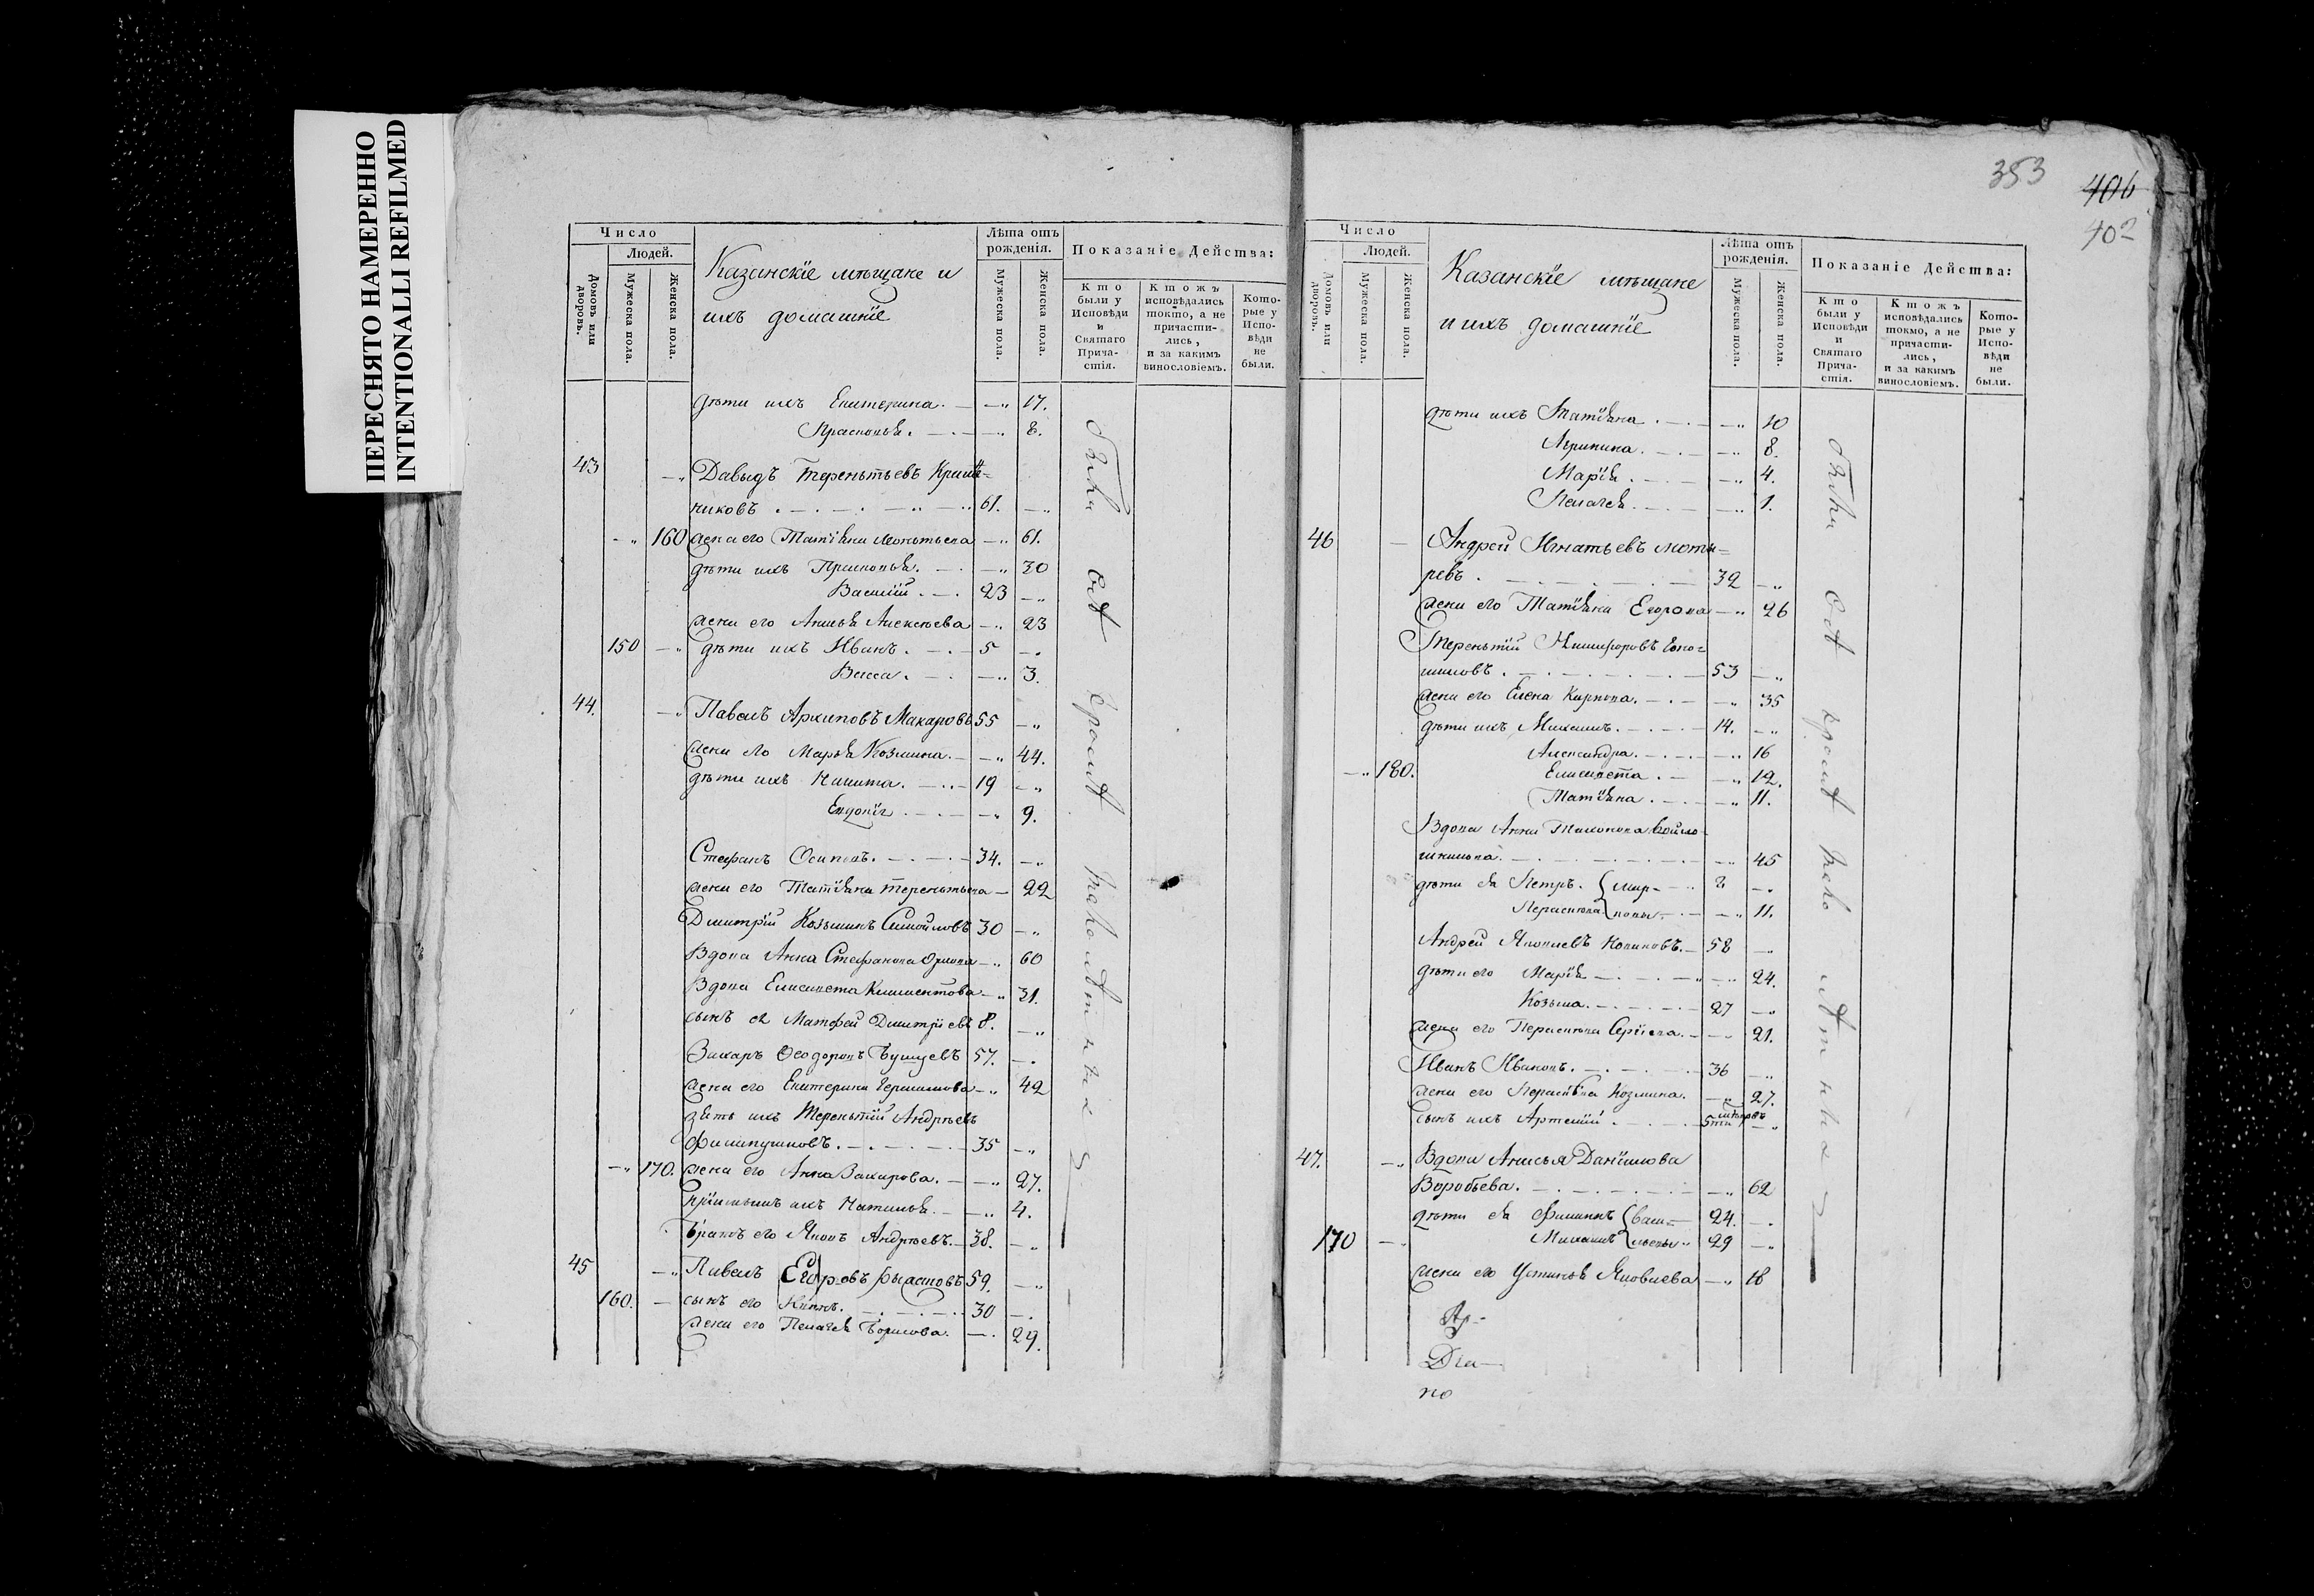 ПЕРЕСНЯТО НАМЕРЕННО
INTENTIONALLI REFILMED
353
406
402
Число
Людей.
Домовъ или дворовъ.
Мужеска пола.
Женска пола.
Казанскіе мѣщане и
ихъ домашніе
Лѣта отъ рожденія.
Мужеска пола.
Женска пола.
Показаніе Действа:
Кто были у Исповѣди и Святаго Причастія.
Ктожъ исповѣдались токмо, а не причастились, и за какимъ винословіемъ.
Которые у Исповѣди не были.
дѣти ихъ Екатерина. 17.
Прасковья. 8.
43 Давыдъ Терентьевъ Краше=
никовъ 61.
160 жена его Татіяна Леонтьева 61.
дѣти ихъ Прасковья. 30
Василій 23
жена его Анисья Алексѣева 23
150 дѣти ихъ Иванъ. 5
Васса. 3.
44. Павелъ Архиповъ Макаровъ 55
жена его Марья Козмина. 44.
дѣти ихъ Никита. 19
Евдокія 9.
Стефанъ Осиповъ. 34.
жена его Татіяна Терентьева 22
Дмитрій Козьминъ Самойловъ 30
Вдова Анна Стефанова Орлова 60
Вдова Елисавета Климентова 31.
сынъ ея Матфей Дмитріевъ 8.
Захаръ Ѳеодоровъ 57.
жена его Екатерина Герасимова 42
зять ихъ Терентій Андрѣевъ
Филипушковъ. 35
170. жена его Анна Захарова. 27.
Пріемышъ ихъ Наталья. 4.
Братъ его Яковъ Андрѣевъ. 38.
45 Павелъ Егоровъ 59.
160. сынъ его 30
жена его Пелагея Борисова. 29.
Число
Людей.
Домовъ или дворовъ.
Мужеска пола.
Женска пола.
Казанскіе мѣщане
и ихъ домашніе
Лѣта отъ рожденія.
Мужеска пола.
Женска пола.
Показаніе Действа:
Кто были у Исповѣди и Святаго Причастія.
Ктожъ исповѣдались токмо, а не причастились, и за какимъ винословіемъ.
Которые у Исповѣди не были.
дѣти ихъ Татіяна 10
Агрипина. 8.
Марія 4.
Пелагея. 1.
46 Андрей Игнатьевъ
ревъ. 32
жена его Татіяна Егорова 26
Терентій Никифоровъ
шиловъ. 53
жена его Елена Карпова. 35
дѣти ихъ Михаилъ. 14.
Александра. 16
180. Елисавета. 12.
Татіяна. 11.
Вдова Анна Тихонова
45
дѣти ея Петръ.
Парасковья 11.
Андрей Яковлевъ 58
дѣти его Марія 24.
Козьма. 27
жена его Парасковья Сергіева. 21.
Иванъ Ивановъ. 36
жена его Парасковья Козмина. 27.
сынъ ихъ Артемій
47. Вдова Анисья Даніилова
Воробьева. 62
дѣти ея Филиппъ 24.
170 Михаилъ 29
жена его Устинья Яковлева 18